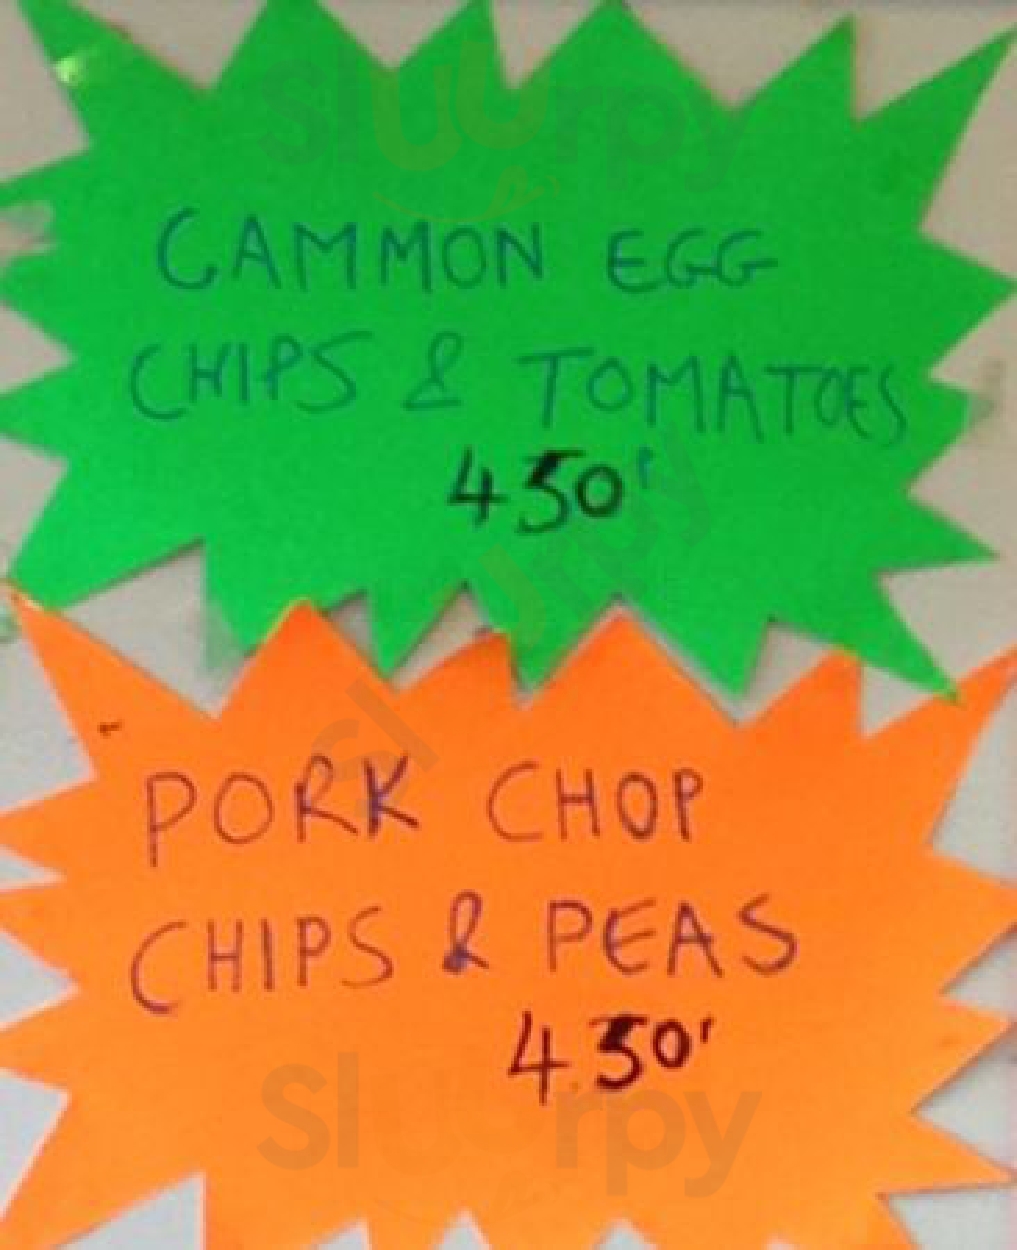 Sluurpy
GAMMON EGG
CHIPS & TOMATOES
4 50'
Sluurpy
PORK CHOP
CHIPS & PEAS
4.50'
Sluurpy